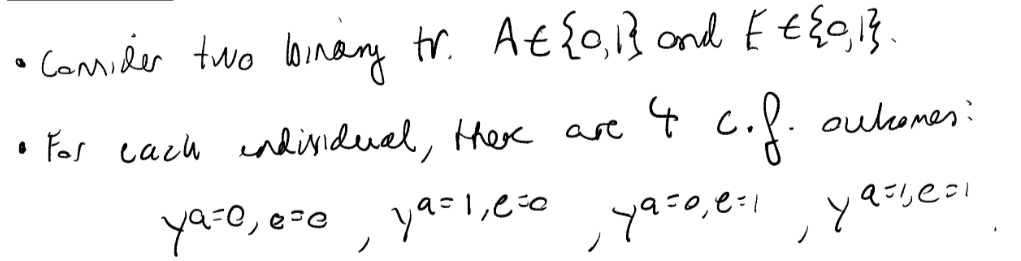 • Consider two binary tr. A ∈ {0,1} and E ∈ {0,1}.
• For each individual, there are 4 c.f. outcomes:
Y^{a=0, e=0}, Y^{a=1, e=0}, Y^{a=0, e=1}, Y^{a=1, e=1}.